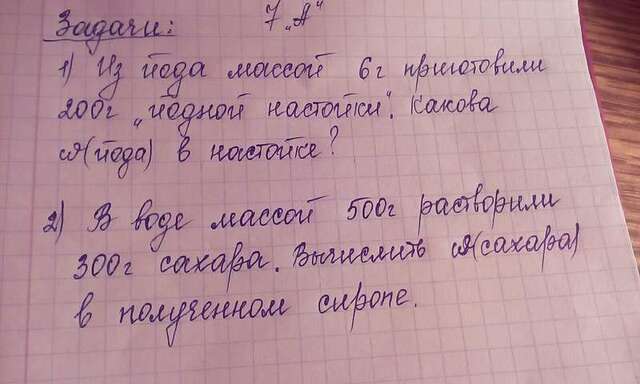 Задачи: 7 „А"
1) Из йода массой 6г приготовили
200г „йодной настойки". Какова
ω(йода) в настойке?
2) В воде массой 500г растворили
300г сахара. Вычислить ω(сахара)
в полученном сиропе.